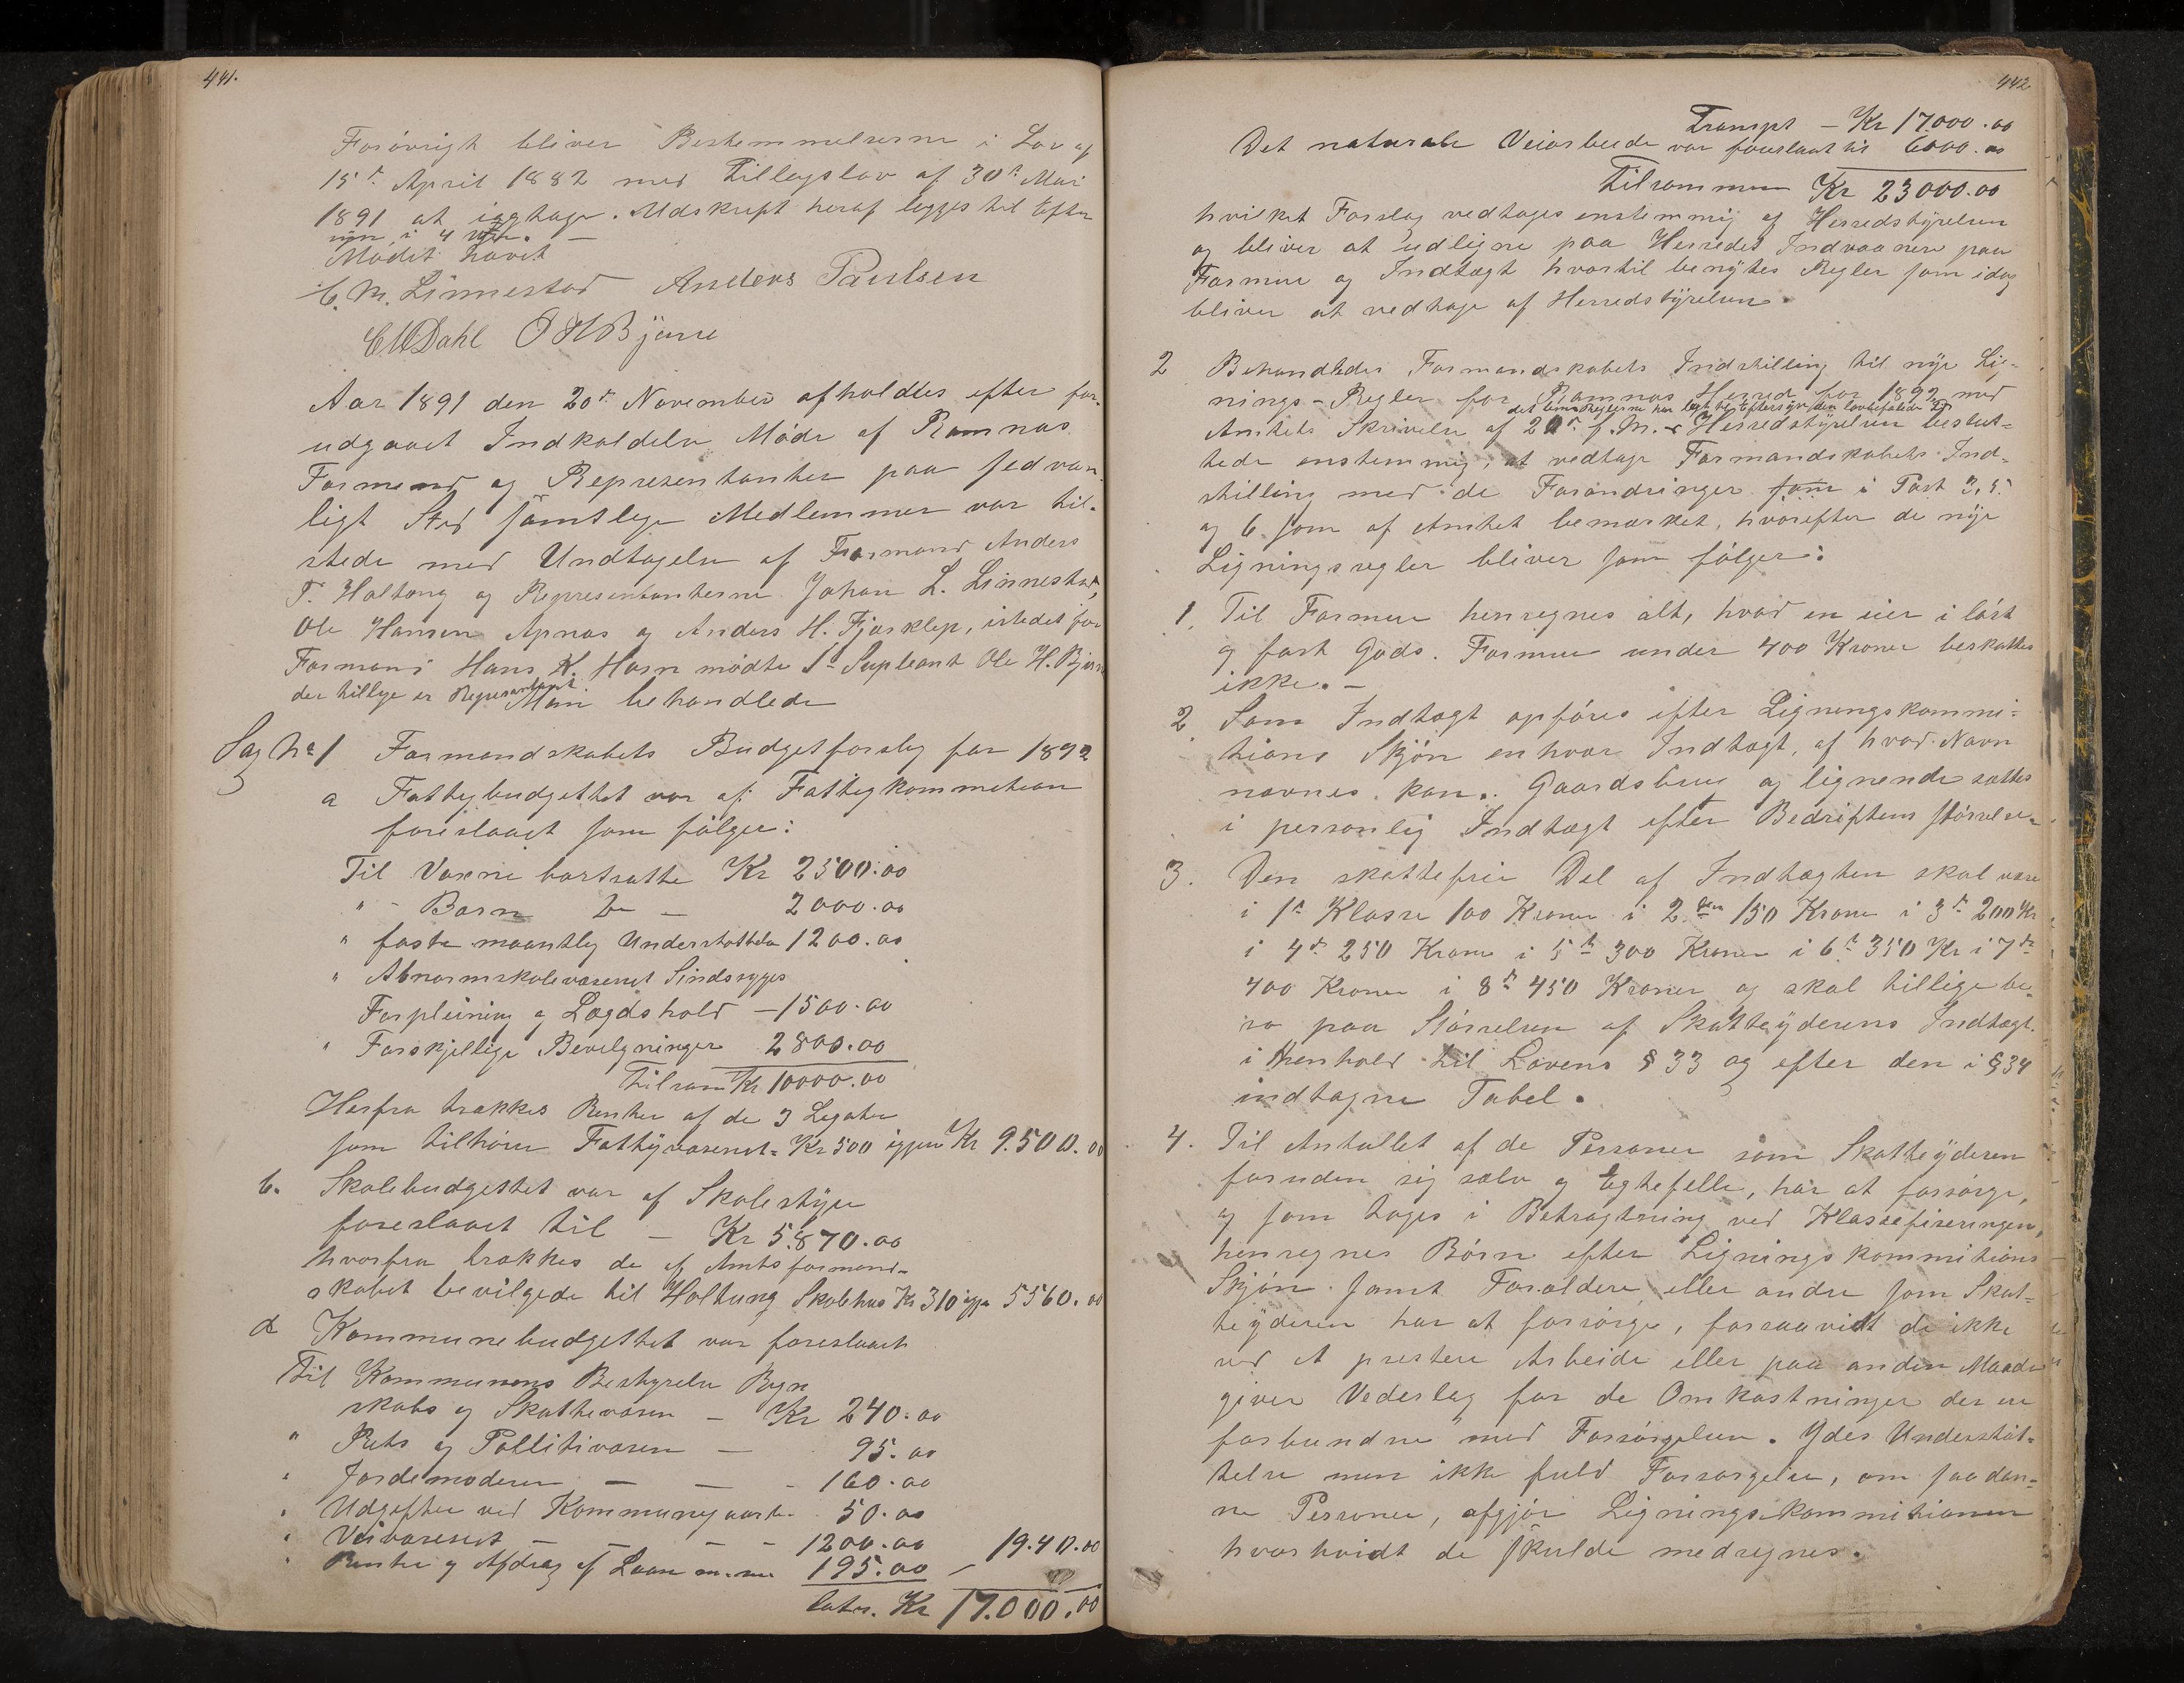 441.
Forövrigt bliver Bestemmelserne i Lov af
15de April 1882 med Tillægslov af 30te Mai
1891 at iagtage. Udskrift heraf lægges til Efter
syn i 4 Uger. —
Mødet hævet
C. M. Linnestad Anders Paulsen
C M Dahl O H Bjerre
Aar 1891 den 20de November afholdtes efter for-
udgaaet Indkaldelse Møde af Ramnæs
Formænd og Repræsentanter paa sedvan-
ligt Sted samtlige Medlemmer var til-
stede med Undtagelse af Formand Anders
T. Holtung og Representanterne Johan L. Linnestad,
Ole Hansen Apnæs og Anders H. Fjæreklep, istedet for
Formand Hans K. Horn mødte 1ste Supleant Ole H. Bjerre
der tillige er Representant. Man behandlede
Sag No 1 Formandskabets Budgetforslag for 1892
a Fattigbudgettet var af Fattigkommetionen
foreslaaet som følger:
Til Voxne bortsatte Kr 2500.00
" - Børn Do — 2000.00
" faste maantlig Understøttelse 1200.00
" Abnormskolevæsenet Sindssyges
Forpleining og Lægdshold — 1500.00
" Forskjellige Bevilgninger 2800.00
Tilsam Kr 10000.00
Herfra trækkes Renter af de 3 Legater
som tilhører Fattigvæsenet = Kr 500 igjen Kr 9.500.00
b. Skolebudgettet var af Skolestyret
foreslaaet til — Kr 5.870.00
hvorfra trækkes de af Amtsformand-
skabet bevilgede til Holtung Skolehus Kr 310 igjen 5560.00
d Kommunebudgettet var foreslaaet
Til Kommunens Bestyrelse Regn
skabs og Skattevæsen — Kr 240.00
" Rets og Pollitivæsen — 95.00
" Jordemoderen — — - 160.00
" Udgifter ved Kommunegaarden 50.00
" Veivæsenet — — - - 1200.00 19.40.00
" Renter og Afdrag af Laan m.m. 195.00 —
Latr. Kr 17.000.00
442
Transpt — Kr 17.000.00
Det naturale Veiarbeide var foreslaaet til 6000.00
Tilsammen Kr 23000.00
hvilket Forslag vedtoges enstemmig af Herredstyrelsen
og bliver at udligne paa Herredets Indvaanere paa
Formue og Indtægt hvortil benyttes Regler som idag
bliver at vedtage af Herredstyrelsen.
2 Behandledes Formandskabets Indstilling til nye Lig-
nings-Regler for Ramnæs Herred for 1892 med
det bem. Reglerne har ligget til Eftersyn den lovbefalede Tid
Amtets Skrivelse af 20de f. M. - Herredstyrelsen beslut-
tede enstemmig, at vedtage Formandskabets Ind-
stilling med de Forandringer som i Post 3, 5
og 6 som af Amtet bemærket, hvorefter de nye
Ligningsregler bliver som følger:
1. Til Formue henregnes alt, hvad en eier i løst
og fast Gods. Formue under 400 Kroner beskattes
ikke. —
2 Som Indtægt opføres efter Ligningskommi-
tions Skjøn enhver Indtægt, af hvad Navn
nævnes kan. Gaardsbrug og lignende sættes
i personlig Indtægt efter Bedriftens Størrelse.
3. Den skattefrie Del af Indtægten skal være
i 1ste Klasse 100 Kroner i 2den 150 Kroner i 3de 200 Kr
i 4de 250 Kroner i 5te 300 Kroner i 6te 350 Kr i 7de
400 Kroner i 8de 450 Kroner og skal tillige be-
ro paa Størrelsen af Skatteyderens Indtægt.
i Henhold til Lovens § 33 og efter den i § 34
indtagne Tabel.
4. Til Antallet af de Personer som Skatteyderen
foruden sig selv og Egtefelle, har at forsørge,
og som tages i Betragtning ved Klassefiseringen,
henregnes Børn efter Ligningskommitions
Skjøn. samt Forældere eller andre som Skat-
teyderen har at forsørge, forsaavidt de ikke
ved at prestere Arbeide eller paa anden Maade
giver Vederlag for de Omkostninger der er
forbundne med Forsørgelsen. Ydes Understøt-
telse men ikke fuld Forsørgelse, om saadan-
ne Personer, afgjør Ligningskommitionen
hvorhvidt de skulde medregnes.